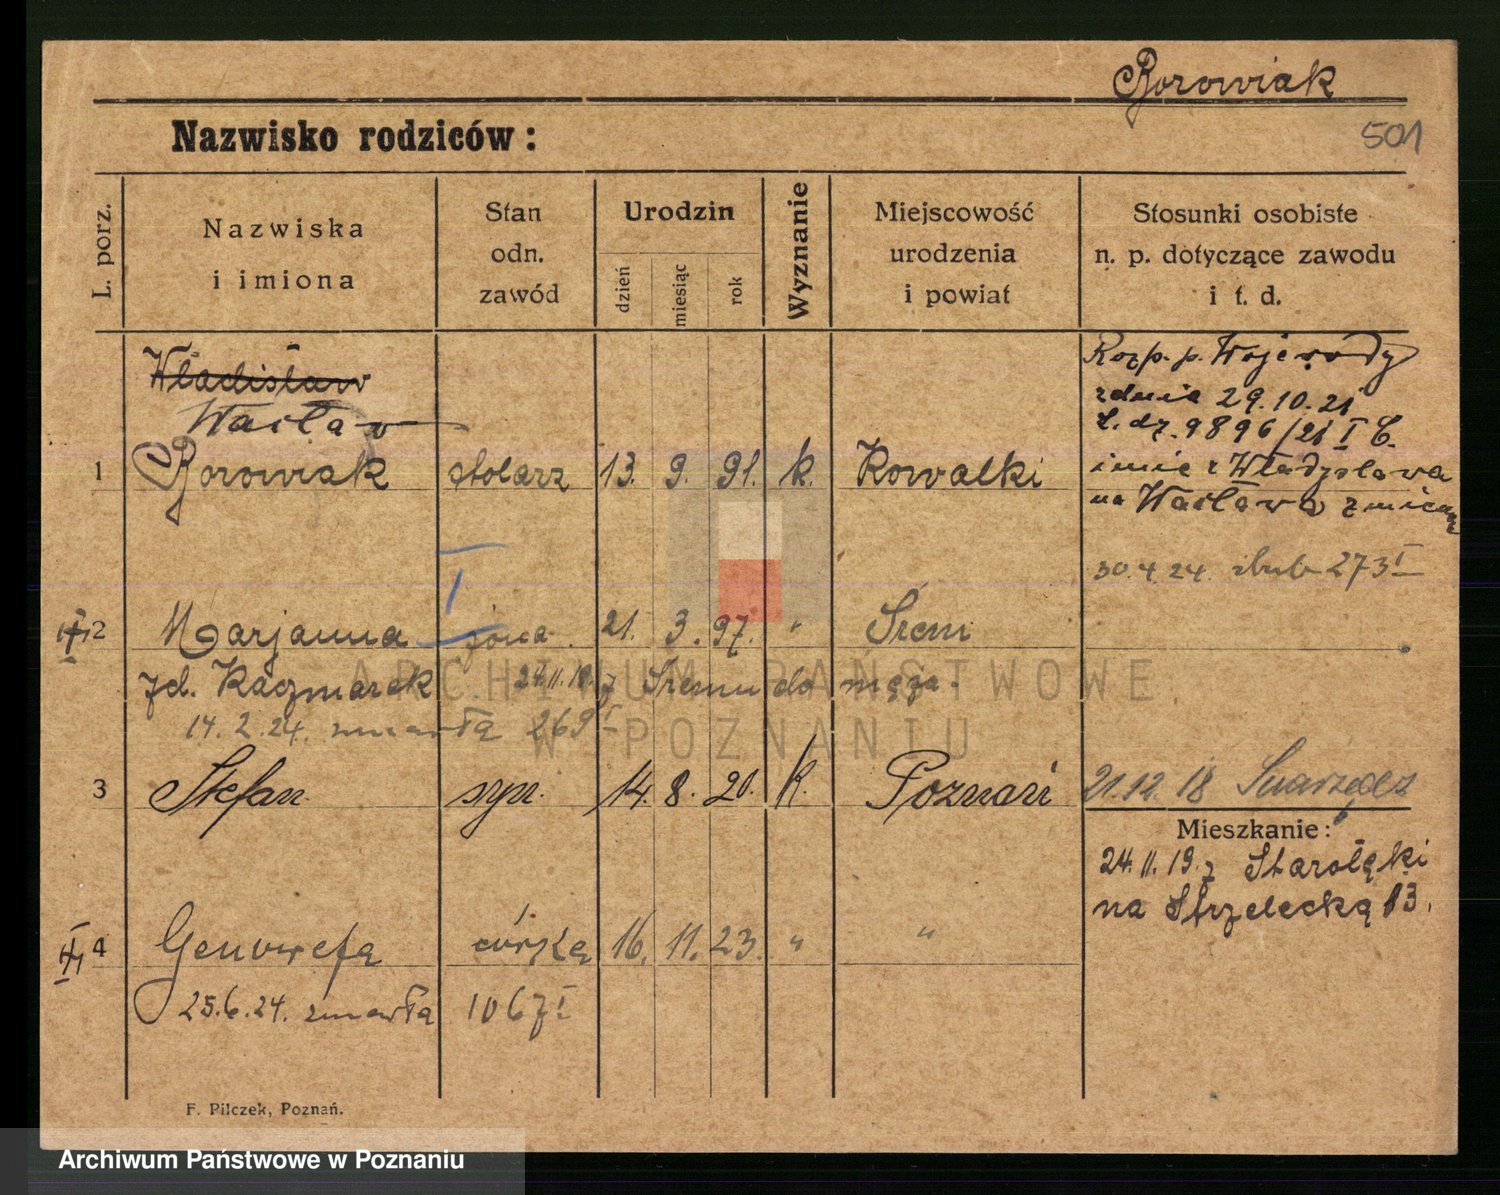 Borowiak
Nazwisko rodziców:
501
L. porz.
Nazwiska
i imiona
Stan
odn.
zawód
Urodzin
dzień
miesiąc
rok
Wyznanie
Miejscowość
urodzenia
i powiat
Stosunki osobiste
n. p. dotyczące zawodu
i t. d.
Władisław
Wacław
1 Borowiak stolarz 13. 9. 91. k. Kowalki
Rozp. p. Wojewody
z dnia 29.10.21
L. dz. 9896/21 I C.
imię z Władysława
na Wacława
30.4.24 ślub 273 I
2 Marjanna żona 21. 3. 97. " Śrem
zd. Kaczmarek 24.11.19. z Śremu do męża.
14.2.24. zmarła 269 I
3 Stefan syn. 14. 8. 20. k. Poznań
21.12.18 Swarzędz
Mieszkanie:
24.11.19. z Starołęki
na Strzelecką 13.
4 Genowefa córka 16. 11. 23. " "
25.6.24. zmarła 1067 I
F. Pilczek, Poznań.
ARCHIWUM PAŃSTWOWE
W POZNANIU
Archiwum Państwowe w Poznaniu